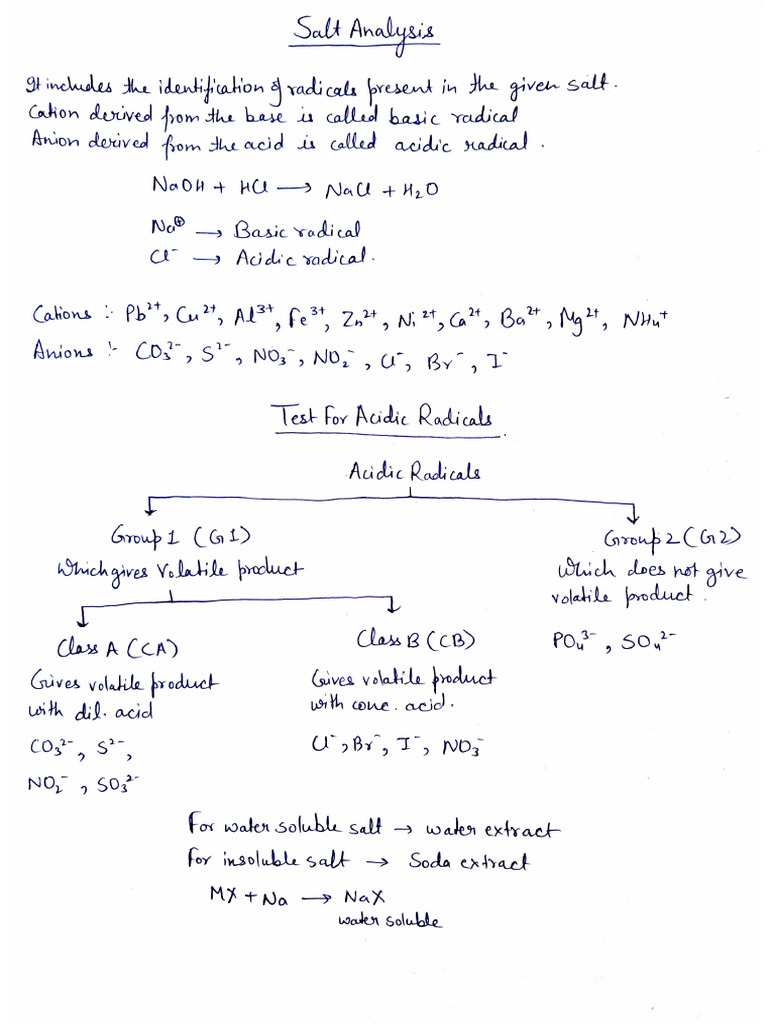 Salt Analysis
It includes the identification of radicals present in the given salt.
Cation derived from the base is called basic radical
Anion derived from the acid is called acidic radical.
NaOH + HCl → NaCl + H₂O
Na⊕ → Basic radical
Cl⁻ → Acidic radical.
Cations :- Pb²⁺, Cu²⁺, Al³⁺, Fe³⁺, Zn²⁺, Ni²⁺, Ca²⁺, Ba²⁺, Mg²⁺, NH₄⁺
Anions :- CO₃²⁻, S²⁻, NO₃⁻, NO₂⁻, Cl⁻, Br⁻, I⁻
Test For Acidic Radicals.
Acidic Radicals
Group 1 (G1)
Which gives Volatile product
Group 2 (G2)
Which does not give
volatile product.
PO₄³⁻, SO₄²⁻
Class A (CA)
Gives volatile product
with dil. acid
CO₃²⁻, S²⁻,
NO₂⁻, SO₃²⁻
Class B (CB)
Gives volatile product
with conc. acid.
Cl⁻, Br⁻, I⁻, NO₃⁻
For water soluble salt → water extract
For insoluble salt → Soda extract
MX + Na → NaX
water soluble